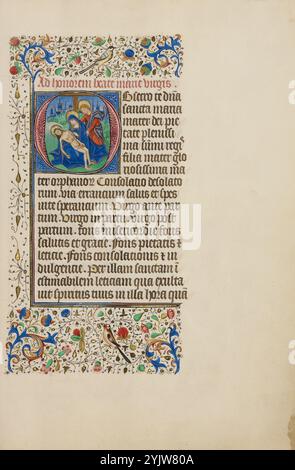 Ad honorem beate marie virgis.
Obsecro te dña
sancta maria
mater dei pie
tate plenissi
ma sũmi regꝭ
filia mater glo
riosissima ma
ter orphanoꝝ Consolatio desolato
rum. via errancium salus et spes
in te sperancium. Virgo ante par
tum. Virgo in partu. virgo post
partum. Fons misericordie fons
salutis et gracie. Fons pietatis ⁊
leticie. Fons consolationis ⁊ in
dulgencie. Per illam sanctam ⁊
estimabilem leticiam qua exulta
uit spiritus tuus in illa hora quã
alamy
Image ID: 2YJW80A
www.alamy.com